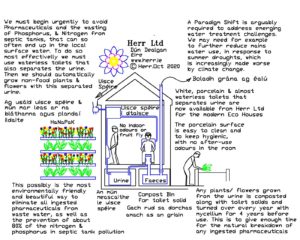 We must begin urgently to avoid
Pharmaceuticals and the wasting
of Phosphorus, & Nitrogen from
septic tanks, that can so
often end up in the local
surface water. To do so
most effectively we must
use waterless toilets that
also separate the urine.
Then we should automatically
grow non-food plants &
flowers with this separated
urine.
Ag usáid uisce &
mún nór leas ar na
bláthanna agus plandaí
áilsite
HaNaPaK
This possibly is the most
environmentally friendly
and beautiful way to
eliminate all ingested
pharmaceuticals from
waste water, as well as
the prevention of about
80% of the nitrogen &
phosphorus in septic tank pollution
Herr Ltd
Dún Dealgan
Eire
www.herr.ie
© Herr.Oct 2020
Uisce
Uisce
No indoor
odours or
fruit fly
Urine
Faeces
An mún
Compost Bin
for toilet solid
A Paradigm Shift is arguably
required to address emerging
water treatment challenges.
We may need for example
to further reduce mains
water use, in response to
summer droughts, which
is increasingly made worse
by climate change.
Boladh grána ag éalú
White, porcelain & almost
waterless toilets that
separates urine are
now available from Herr Ltd
for the modern Eco Houses
The porcelain surface
is easy to clean and
to keep hygienic,
with no after-use
odours in the room
Any plants/ flowers grown
from the urine is composted
along with toilet solids and
turned over every year with
mycelium for 4 years before
use. This is to give enough time
for the natural breakdown of
any ingested pharmaceuticals